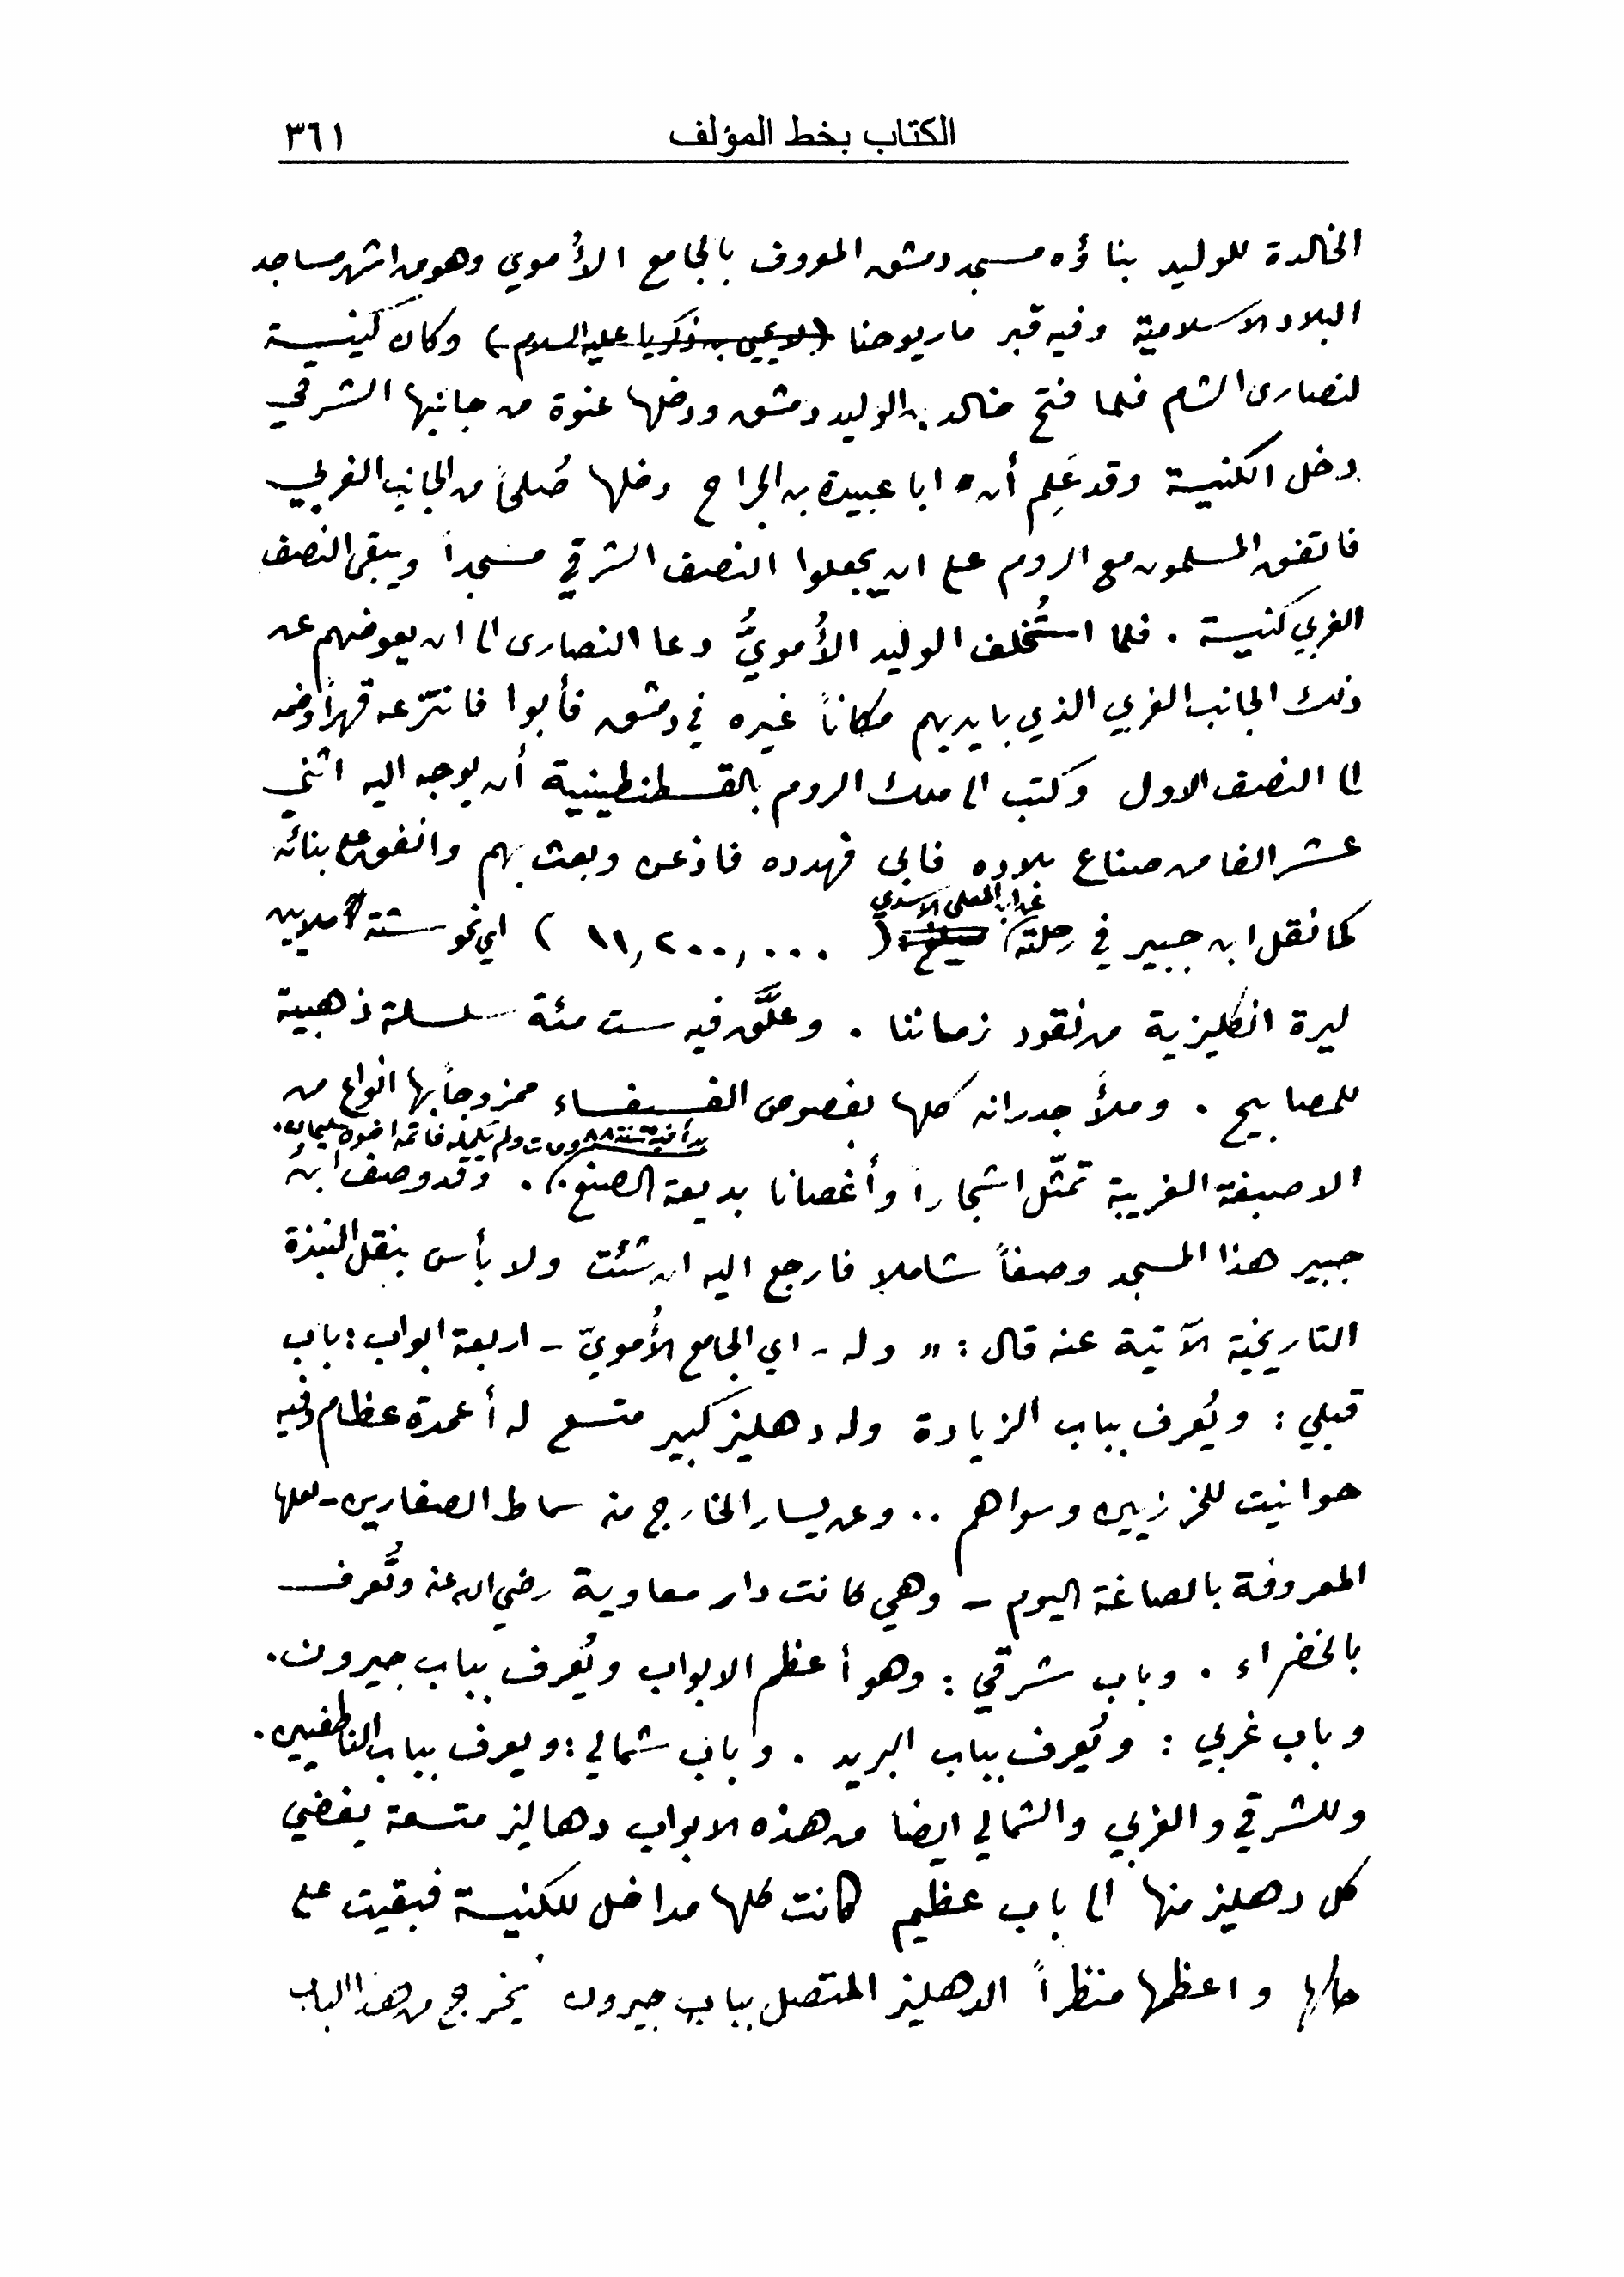 الكتاب بخط المؤلف ٣٦١
الخالدة للوليد بناؤه مسجد دمشق المعروف بالجامع الأموي وهو من اشهر مساجد
البلاد الاسلامية وفيه قبر ماريوحنا (لا يحيى بن زكريا عليه السلام) وكان كنيسة
لنصارى الشام فلما فتح خالد بن الوليد دمشق ودخلها عنوة من جانبها الشرقي
دخل الكنيسة وقد عَلِم أن ابا عبيدة بن الجراح دخلها صُلحاً من الجانب الغربي
فاتفق المسلمون مع الروم على ان يجعلوا النصف الشرقي مسجداً ويبقى النصف
الغربي كنيسة . فلما استُخلف الوليد الأُمويُّ دعا النصارى الى ان يعوضهم عن
ذلك الجانب الغربي الذي بايديهم مكاناً غيره في دمشق فأبوا فانتزعه قهراً وضمه
الى النصف الاول وكتب الى ملك الروم بالقسطنطينية أن يوجه اليه اثني
عشر الفا من صناع بلاده فابى فهدده فاذعن وبعث بهم وانفق على بنائه
عن ابن المعلى الاسدي
كما نقل ابن جبير في رحلته ( ١١,٢٠٠,٠٠٠ ) اي نحو ستة ملايين
ليرة انكليزية من نقود زماننا . وعلَّق فيه ست مئة سلسلة ذهبية
للمصابيح . وملأ جدرانه كلها بفصوص الفسيفساء ممزوجاً بها انواع من
بدأ فيه سنة ٨٨ ومات ولم يكمله فاتمه اخوه سليمان.
الاصبغة الغريبة تمثّل اشجاراً وأغصانا بديعة الصنع . وقد وصف ابنُ
جبير هذا المسجد وصفاً شاملا فارجع اليه ان شئت ولا بأس بنقل النبذة
التاريخية الآتية عنه قال : " وله - اي الجامع الأُمويّ - اربعة ابواب : باب
قبلي : ويُعرف بباب الزيادة وله دهليز كبير متسع له أعمدة عظام وفيه
حوانيت للخرزيين وسواهم .. وعن يسار الخارج منه سماط الصفارين - لعلها
المعروفة بالصاغة اليوم - وهي كانت دار معاوية رضي الله عنه وتُعرف
بالخضراء . وباب شرقي : وهو أعظم الابواب ويُعرف بباب جيرون .
وباب غربي : ويُعرف بباب البريد . وباب شمالي : ويعرف بباب الناطفيين .
وللشرقي والغربي والشمالي ايضا من هذه الابواب دهاليز متسعة يفضي
كل دهليز منها الى باب عظيم كانت كلها مداخل للكنيسة فبقيت على
حالها واعظمها منظراً الدهليز المتصل بباب جيرون يخرج من هذا الباب